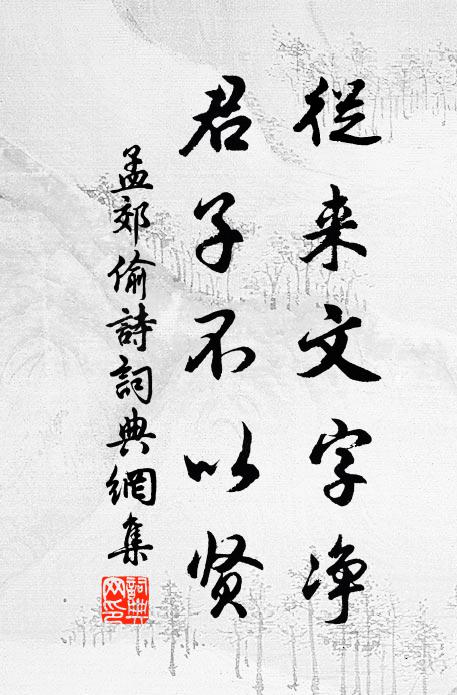 從来文字净
君子不以贤
孟郊偷詩詞典網集
詞典